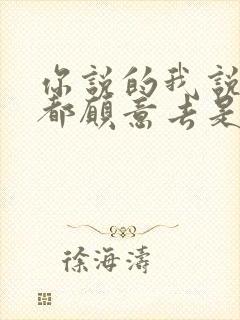 你說的我說
都願意去是
徐海濤